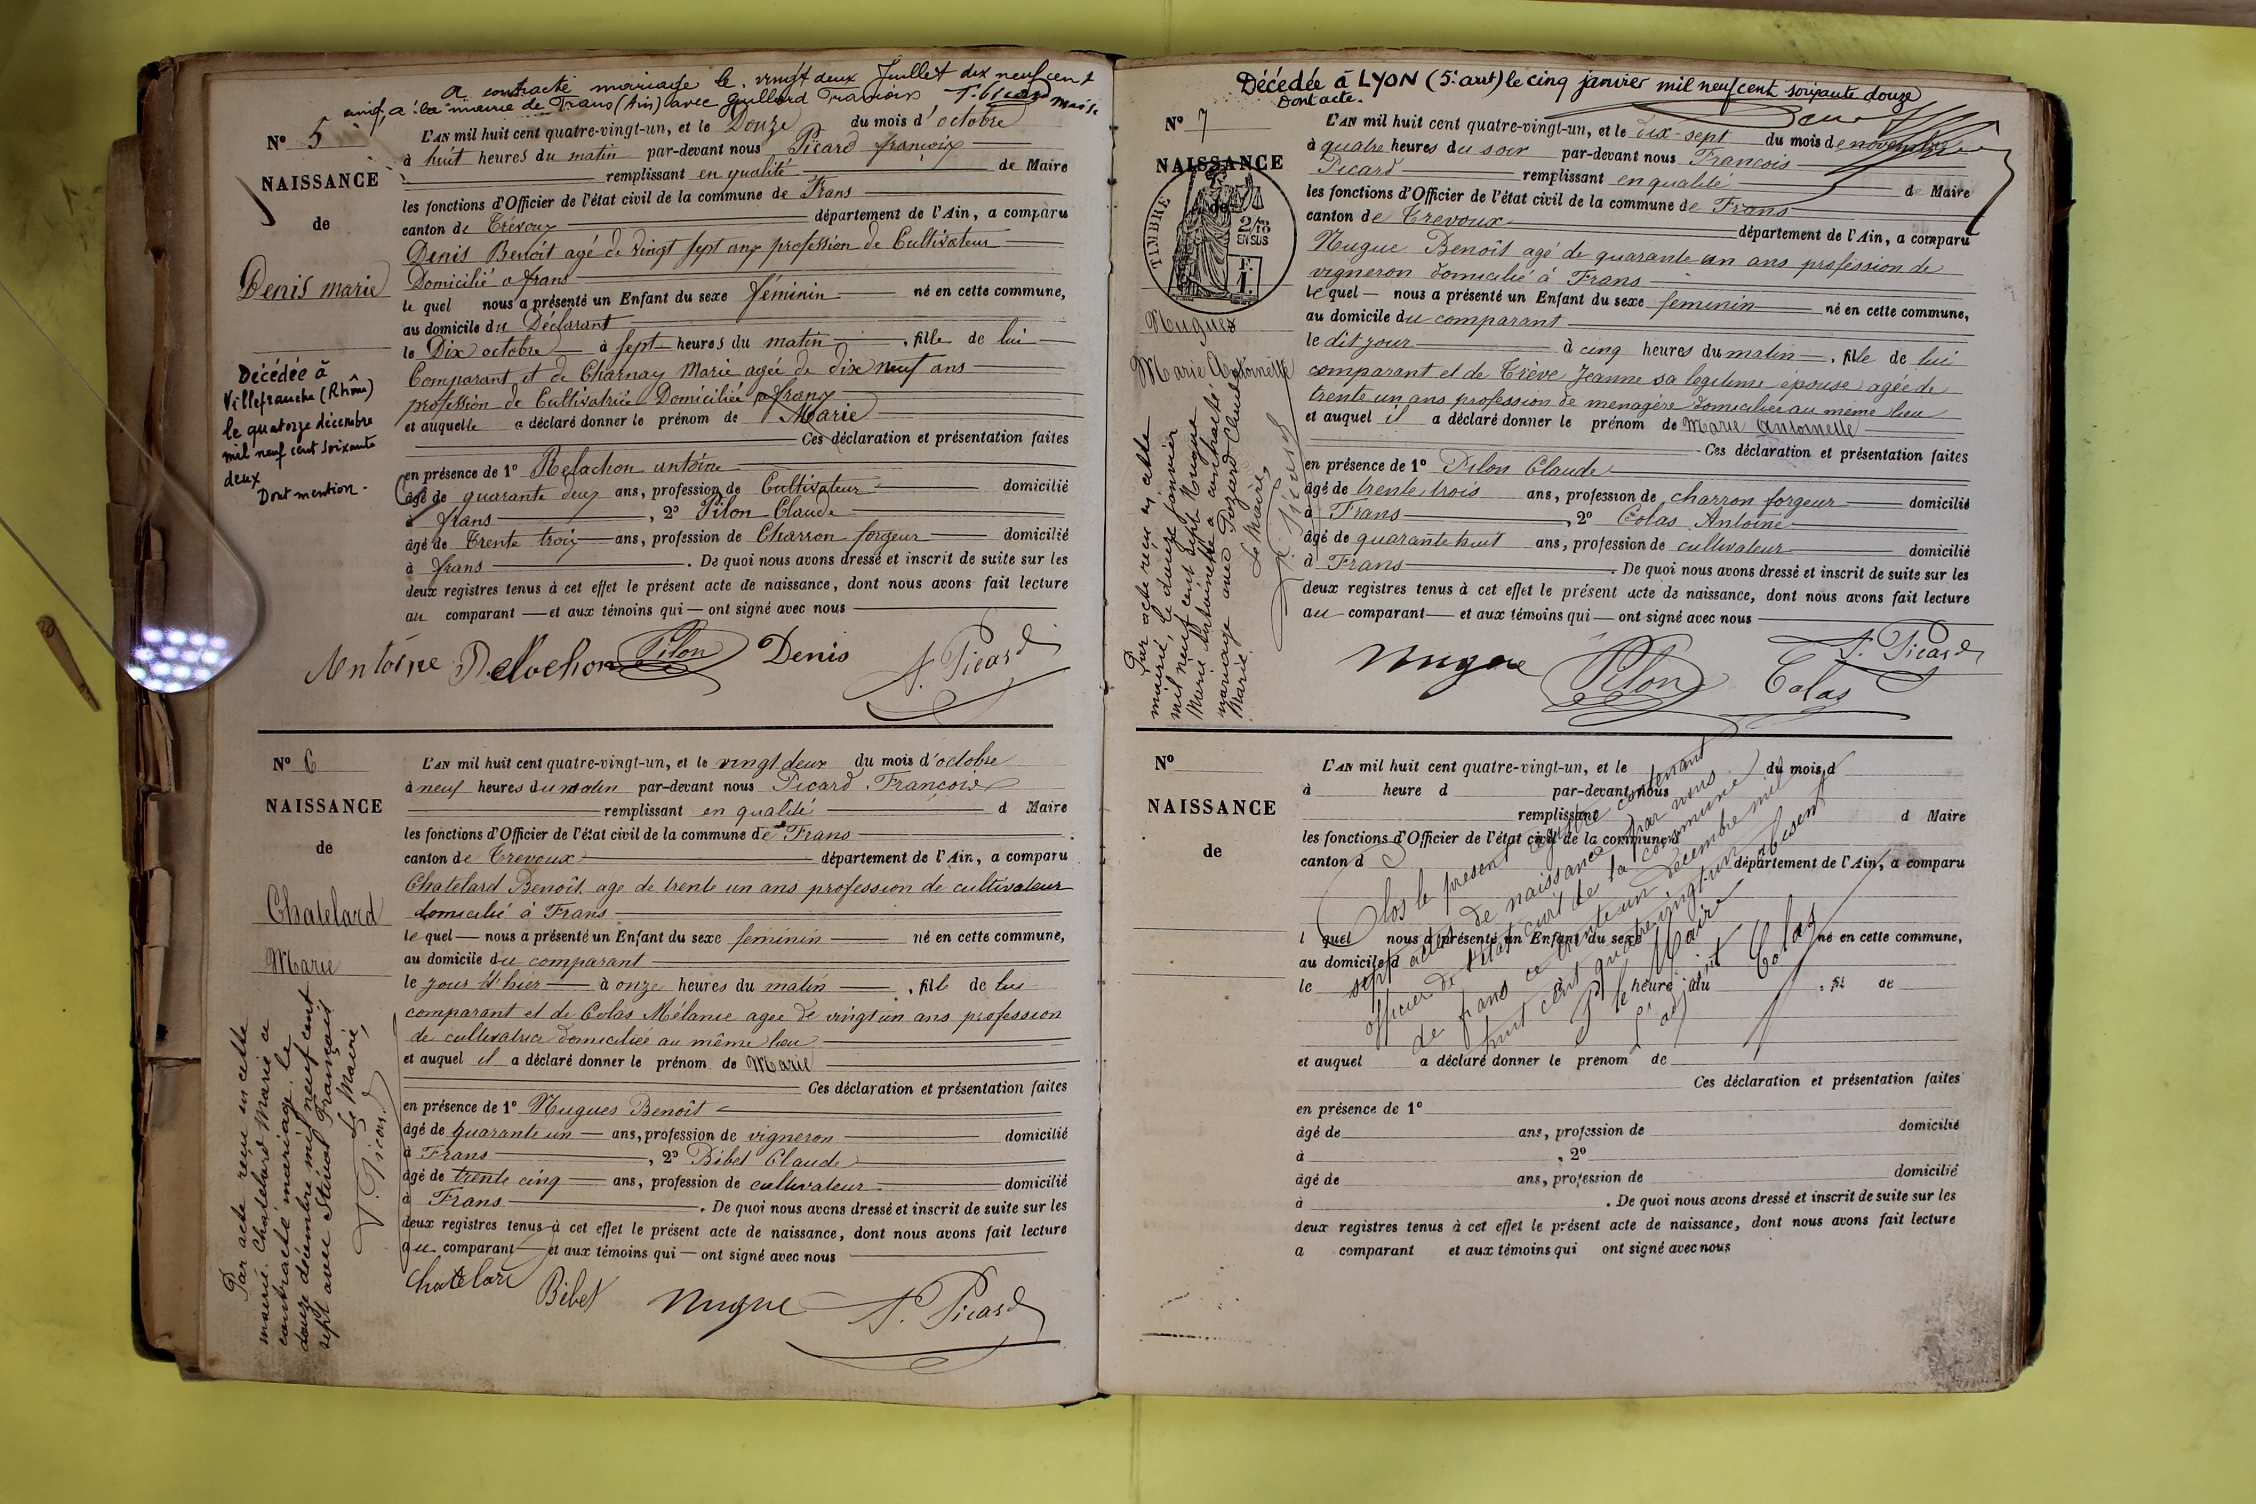 A contracté mariage le vingt deux Juillet dix neuf cent
cinq, à la mairie de Frans (Ain) avec Guillard François F. Picard maire
N° 5
NAISSANCE
de
Denis marie
Décédée à
Villefranche (Rhône)
le quatorze décembre
mil neuf cent soixante
deux
Dont mention.
L'AN mil huit cent quatre-vingt-un, et le Douze du mois d'octobre
à huit heures du matin par-devant nous Picard françois
remplissant en qualité de Maire
les fonctions d'Officier de l'état civil de la commune de Frans
canton de Trévoux département de l'Ain, a comparu
Denis Benoît agé de vingt sept ans profession de Cultivateur
Domicilié a frans
le quel nous a présenté un Enfant du sexe féminin né en cette commune,
au domicile du Déclarant
le Dix octobre à sept heures du matin , fille de lui
Comparant et de Charnay Marie agée de dix neuf ans
profession de Cultivatrice Domiciliée a frans
et auquelle a déclaré donner le prénom de Marie
Ces déclaration et présentation faites
en présence de 1° Relachon antoine
âgé de quarante deux ans, profession de Cultivateur domicilié
à frans , 2° Pilon Claude
âgé de Trente trois ans, profession de Charron forgeur domicilié
à frans . De quoi nous avons dressé et inscrit de suite sur les
deux registres tenus à cet effet le présent acte de naissance, dont nous avons fait lecture
au comparant et aux témoins qui ont signé avec nous
Antoine Relochon Pilon Denis F. Picard
N° 6
NAISSANCE
de
Chatelard
Marie
Par acte reçu en cette
mairie Chatelard Marie a
contracté mariage le
douze décembre mil neuf cent
sept avec Stival François
Le Maire,
F. Picard
L'AN mil huit cent quatre-vingt-un, et le vingt deux du mois d'octobre
à neuf heures du matin par-devant nous Picard François
remplissant en qualité d Maire
les fonctions d'Officier de l'état civil de la commune de Frans
canton de Trevoux département de l'Ain, a comparu
Chatelard Benoît age de trente un ans profession de cultivateur
domicilié à Frans
le quel nous a présenté un Enfant du sexe feminin né en cette commune,
au domicile du comparant
le jour d'hier à onze heures du matin , fille de lui
comparant et de Colas Mélanie agee de vingt un ans profession
de cultivatrice domiciliée au même lieu
et auquel il a déclaré donner le prénom de Marie
Ces déclaration et présentation faites
en présence de 1° Nugues Benoît
âgé de quarante un ans, profession de vigneron domicilié
à Frans , 2° Bibet Claude
âgé de trente cinq ans, profession de cultivateur domicilié
à Frans . De quoi nous avons dressé et inscrit de suite sur les
deux registres tenus à cet effet le présent acte de naissance, dont nous avons fait lecture
au comparant et aux témoins qui ont signé avec nous
Chatelard Bibet Nugue F. Picard
Décédée à LYON (5e arrt) le cinq janvier mil neuf cent soixante douze
Dont acte.
N° 7
NAISSANCE
de
TIMBRE
2/10
EN SUS
F.
1.
Nugues
Marie Antoinette
Par acte reçu en cette
mairie, le douze janvier
mil neuf cent sept Nougue
Marie Antoinette a contracté
mariage avec Pozard Claude
Marie.
Le Maire,
F. Picard
L'AN mil huit cent quatre-vingt-un, et le dix-sept du mois de novembre
à quatre heures du soir par-devant nous François
Picard remplissant en qualité d Maire
les fonctions d'Officier de l'état civil de la commune de Frans
canton de Trevoux département de l'Ain, a comparu
Nugue Benoît agé de quarante un ans profession de
vigneron domicilié à Frans
le quel nous a présenté un Enfant du sexe feminin né en cette commune,
au domicile du comparant
le dit jour à cinq heures du matin , fille de lui
comparant et de Trève Jeanne sa legitime épouse agée de
trente un ans profession de menagère domiciliée au meme lieu
et auquel il a déclaré donner le prénom de Marie Antoinette
Ces déclaration et présentation faites
en présence de 1° Pilon Claude
âgé de trente trois ans, profession de charron forgeur domicilié
à Frans , 2° Colas Antoine
âgé de quarante huit ans, profession de cultivateur domicilié
à Frans . De quoi nous avons dressé et inscrit de suite sur les
deux registres tenus à cet effet le présent acte de naissance, dont nous avons fait lecture
au comparant et aux témoins qui ont signé avec nous
Nugue Pilon Colas F. Picard
N°
NAISSANCE
de
L'AN mil huit cent quatre-vingt-un, et le du mois d
à heure d par-devant nous
remplissant d Maire
les fonctions d'Officier de l'état civil de la commune d
canton d département de l'Ain, a comparu
l quel nous a présenté un Enfant du sexe né en cette commune,
au domicile d
le heure du , fil de
et auquel a déclaré donner le prénom de
Ces déclaration et présentation faites
en présence de 1°
âgé de ans, profession de domicilié
à , 2°
âgé de ans, profession de domicilié
à . De quoi nous avons dressé et inscrit de suite sur les
deux registres tenus à cet effet le présent acte de naissance, dont nous avons fait lecture
a comparant et aux témoins qui ont signé avec nous
Clos le present registre contenant
sept actes de naissance par nous
officier de l'état civil de la commune
de frans ce trente un decembre mil
huit cent quatre vingt-un
P. le Maire absent
l'adjoint Colas